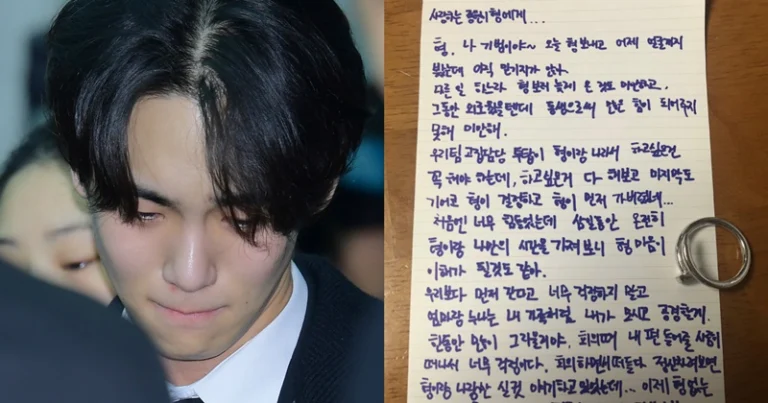 사랑하는 종현이형에게...
형, 나 기범이야~ 오늘 형보내고 어제 얼굴까지
봤는데 아직 믿기지가 않아.
다른 일 하느라 형보러 늦게 온 것도 미안하고,
그동안 외로웠을텐데 동생으로써 만번 힘이 되어주지
못해 미안해.
우리팀 고집담당 투탑이 형이랑 나라서 하고싶은건
꼭 해야 하는데, 하고싶은거 다 해보고 마지막도
기어코 형이 결정하고 형이 먼저 가버렸네...
처음엔 너무 힘들었는데 삼일동안 온전히
형이랑 나만의 시간을 가져보니 형 마음이
이해가 될것도 같아.
우리보다 먼저 간다고 너무 걱정하지 말고
엄마랑 누나는 내 가족처럼 내가 모시고 공경할게.
한동안 많이 그리울거야. 회의때 내 편 들어줄 사람이
떠나서 너무 걱정이다. 회의하면서 떠들다 정신차려보면
형이랑 나랑만 실컷 얘기하고 있었는데... 이제 형 없는